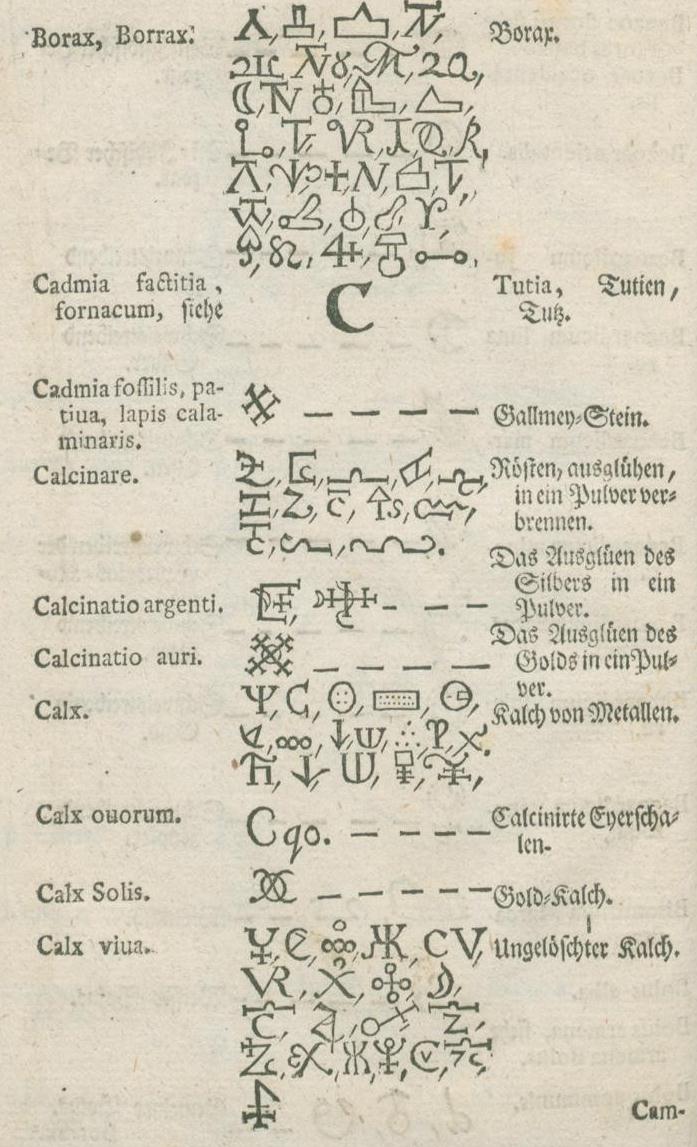 Borax, Borrax. Borax.
C
Cadmia factitia, Tutia, Tutien,
fornacum, siehe Tutz.
Cadmia fossilis, pa-
tiua, lapis cala- Gallmey-Stein.
minaris.
Calcinare. Rösten, ausglühen,
in ein Pulver ver-
brennen.
Calcinatio argenti. Das Ausglüen des
Silbers in ein
Pulver.
Calcinatio auri. Das Ausglüen des
Golds in ein Pul-
ver.
Calx. Kalch von Metallen.
Calx ouorum. C qo. Calcinirte Eyerscha-
len.
Calx Solis. Gold-Kalch.
Calx viua. Ungelöschter Kalch.
Cam-